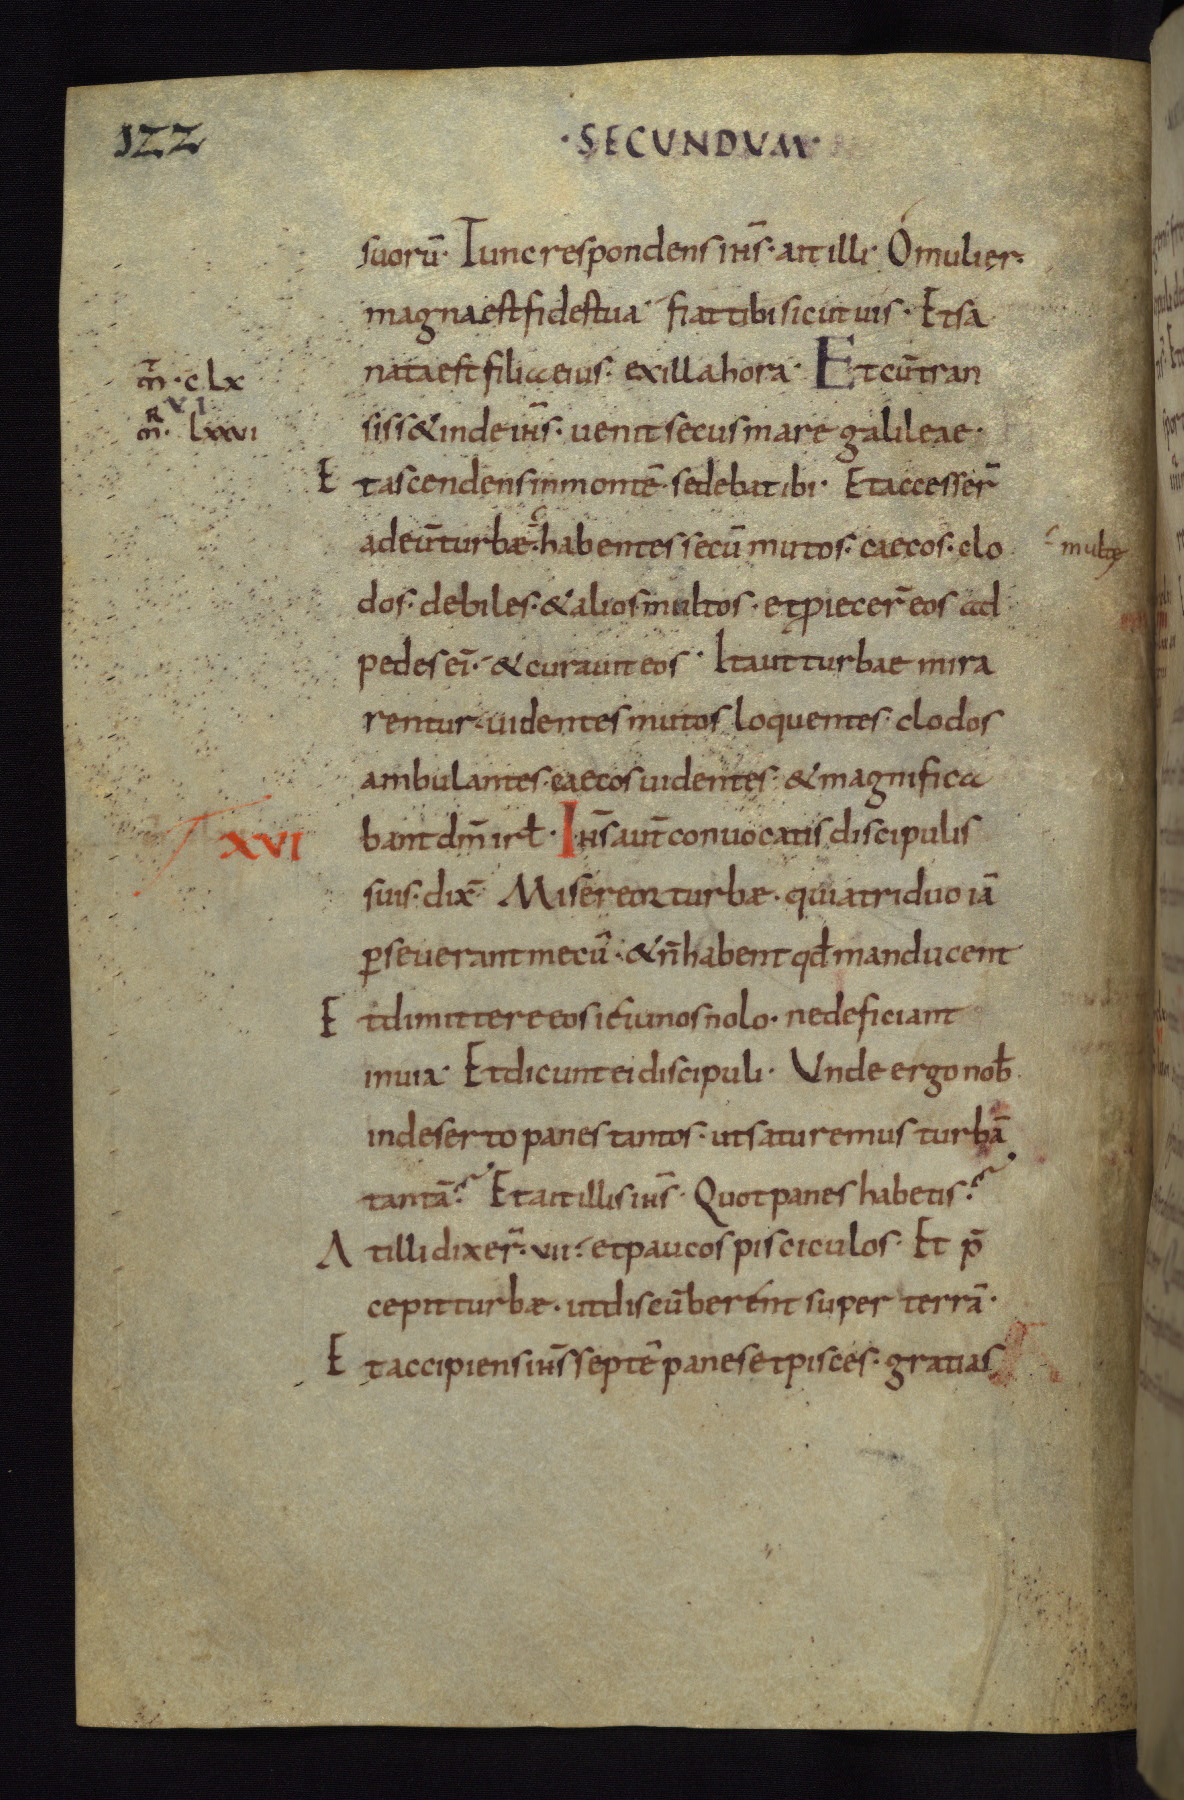 122
·SECUNDUM·
suorū· Tunc respondens ih̄s· ait illi· O mulier·
magna est fides tua· fiat tibi sicut uis· Et sa
nata est filia eius· ex illa hora· Et cū tran
m̄t· clx
siss& inde ih̄s· uenit secus mare galileae·
mR· lxxvi
VI
Et ascendens in montē· sedebat ibi· Et accesser̄
ad eū turbæ· habentes secū mutos· caecos· clo
multę
dos· debiles· & alios multos· et ꝓiecer̄ eos ad
pedes ei᷒· & curauit eos· Ita ut turbae mira
rentur· uidentes mutos loquentes· clodos
ambulantes· caecos uidentes· & magnifica
XVI
bant dm̄ isrł· Ih̄s aut̄ conuocatis discipulis
suis· dix̄ Misereor turbæ· quia triduo iā
ꝑseuerant mecū· & n̄ habent qd̄ manducent
Et dimittere eos ieiunos nolo· ne deficiant
in uia· Et dicunt ei discipuli· Unde ergo nob̄
in deserto panes tantos· ut saturemus turbā
tantā? Et ait illis ih̄s· Quot panes habetis?
At illi dixer̄· vii· et paucos pisciculos· Et p̄
cepit turbæ· ut discūberent super terrā·
Et accipiens ih̄s septē panes et pisces· gratias